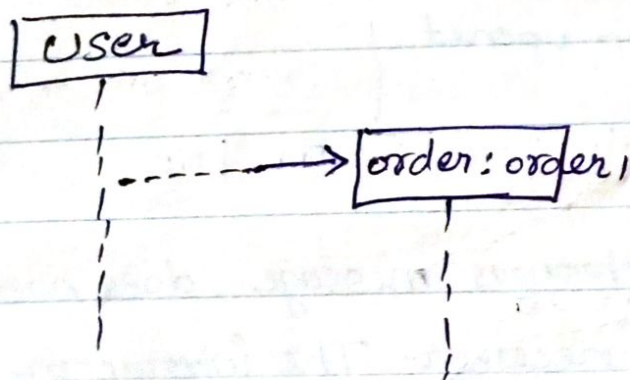 User
order: order